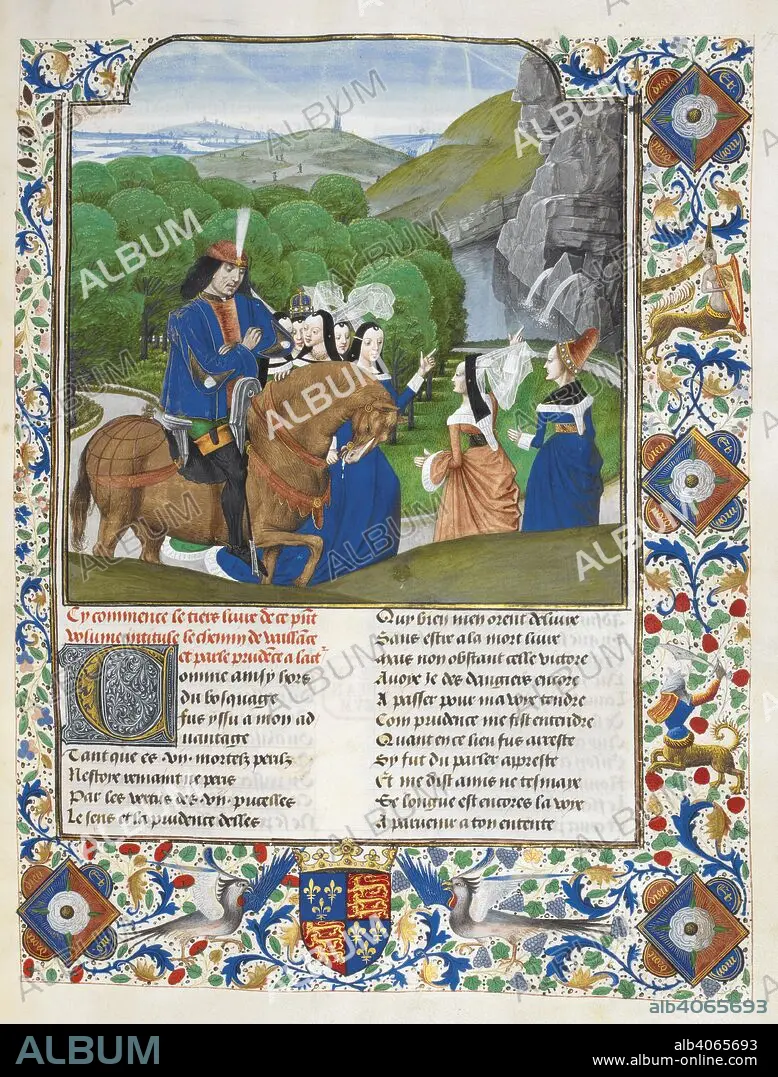 Cy commence le tiers livre de ce pñt
volume intitule le chemin de vaillãce
et parle prudẽce a lactʳ
Comme ainsy hors
du bosquage
fus yssu a mon ad
uantage
Tant que es .vij. mortelz perilz
Nestoie
Par les vertus des .vij. pucelles
Le sens et la prudence delles
Quy bien men orent deliure
Sans estre a la mort liure
Mais non obstant celle victore
Auoye Je des dangiers encore
A passer pour ma voye tendre
Com prudence me fist entendre
Quant en ce lieu fus arreste
Sy fut du parler apreste
Et me dist amis ne tesmaye
Se longue est encores la voye
A paruenir a ton entente
ALBUM
alb4065693
ALBUM
alb4065693
www.album-online.com